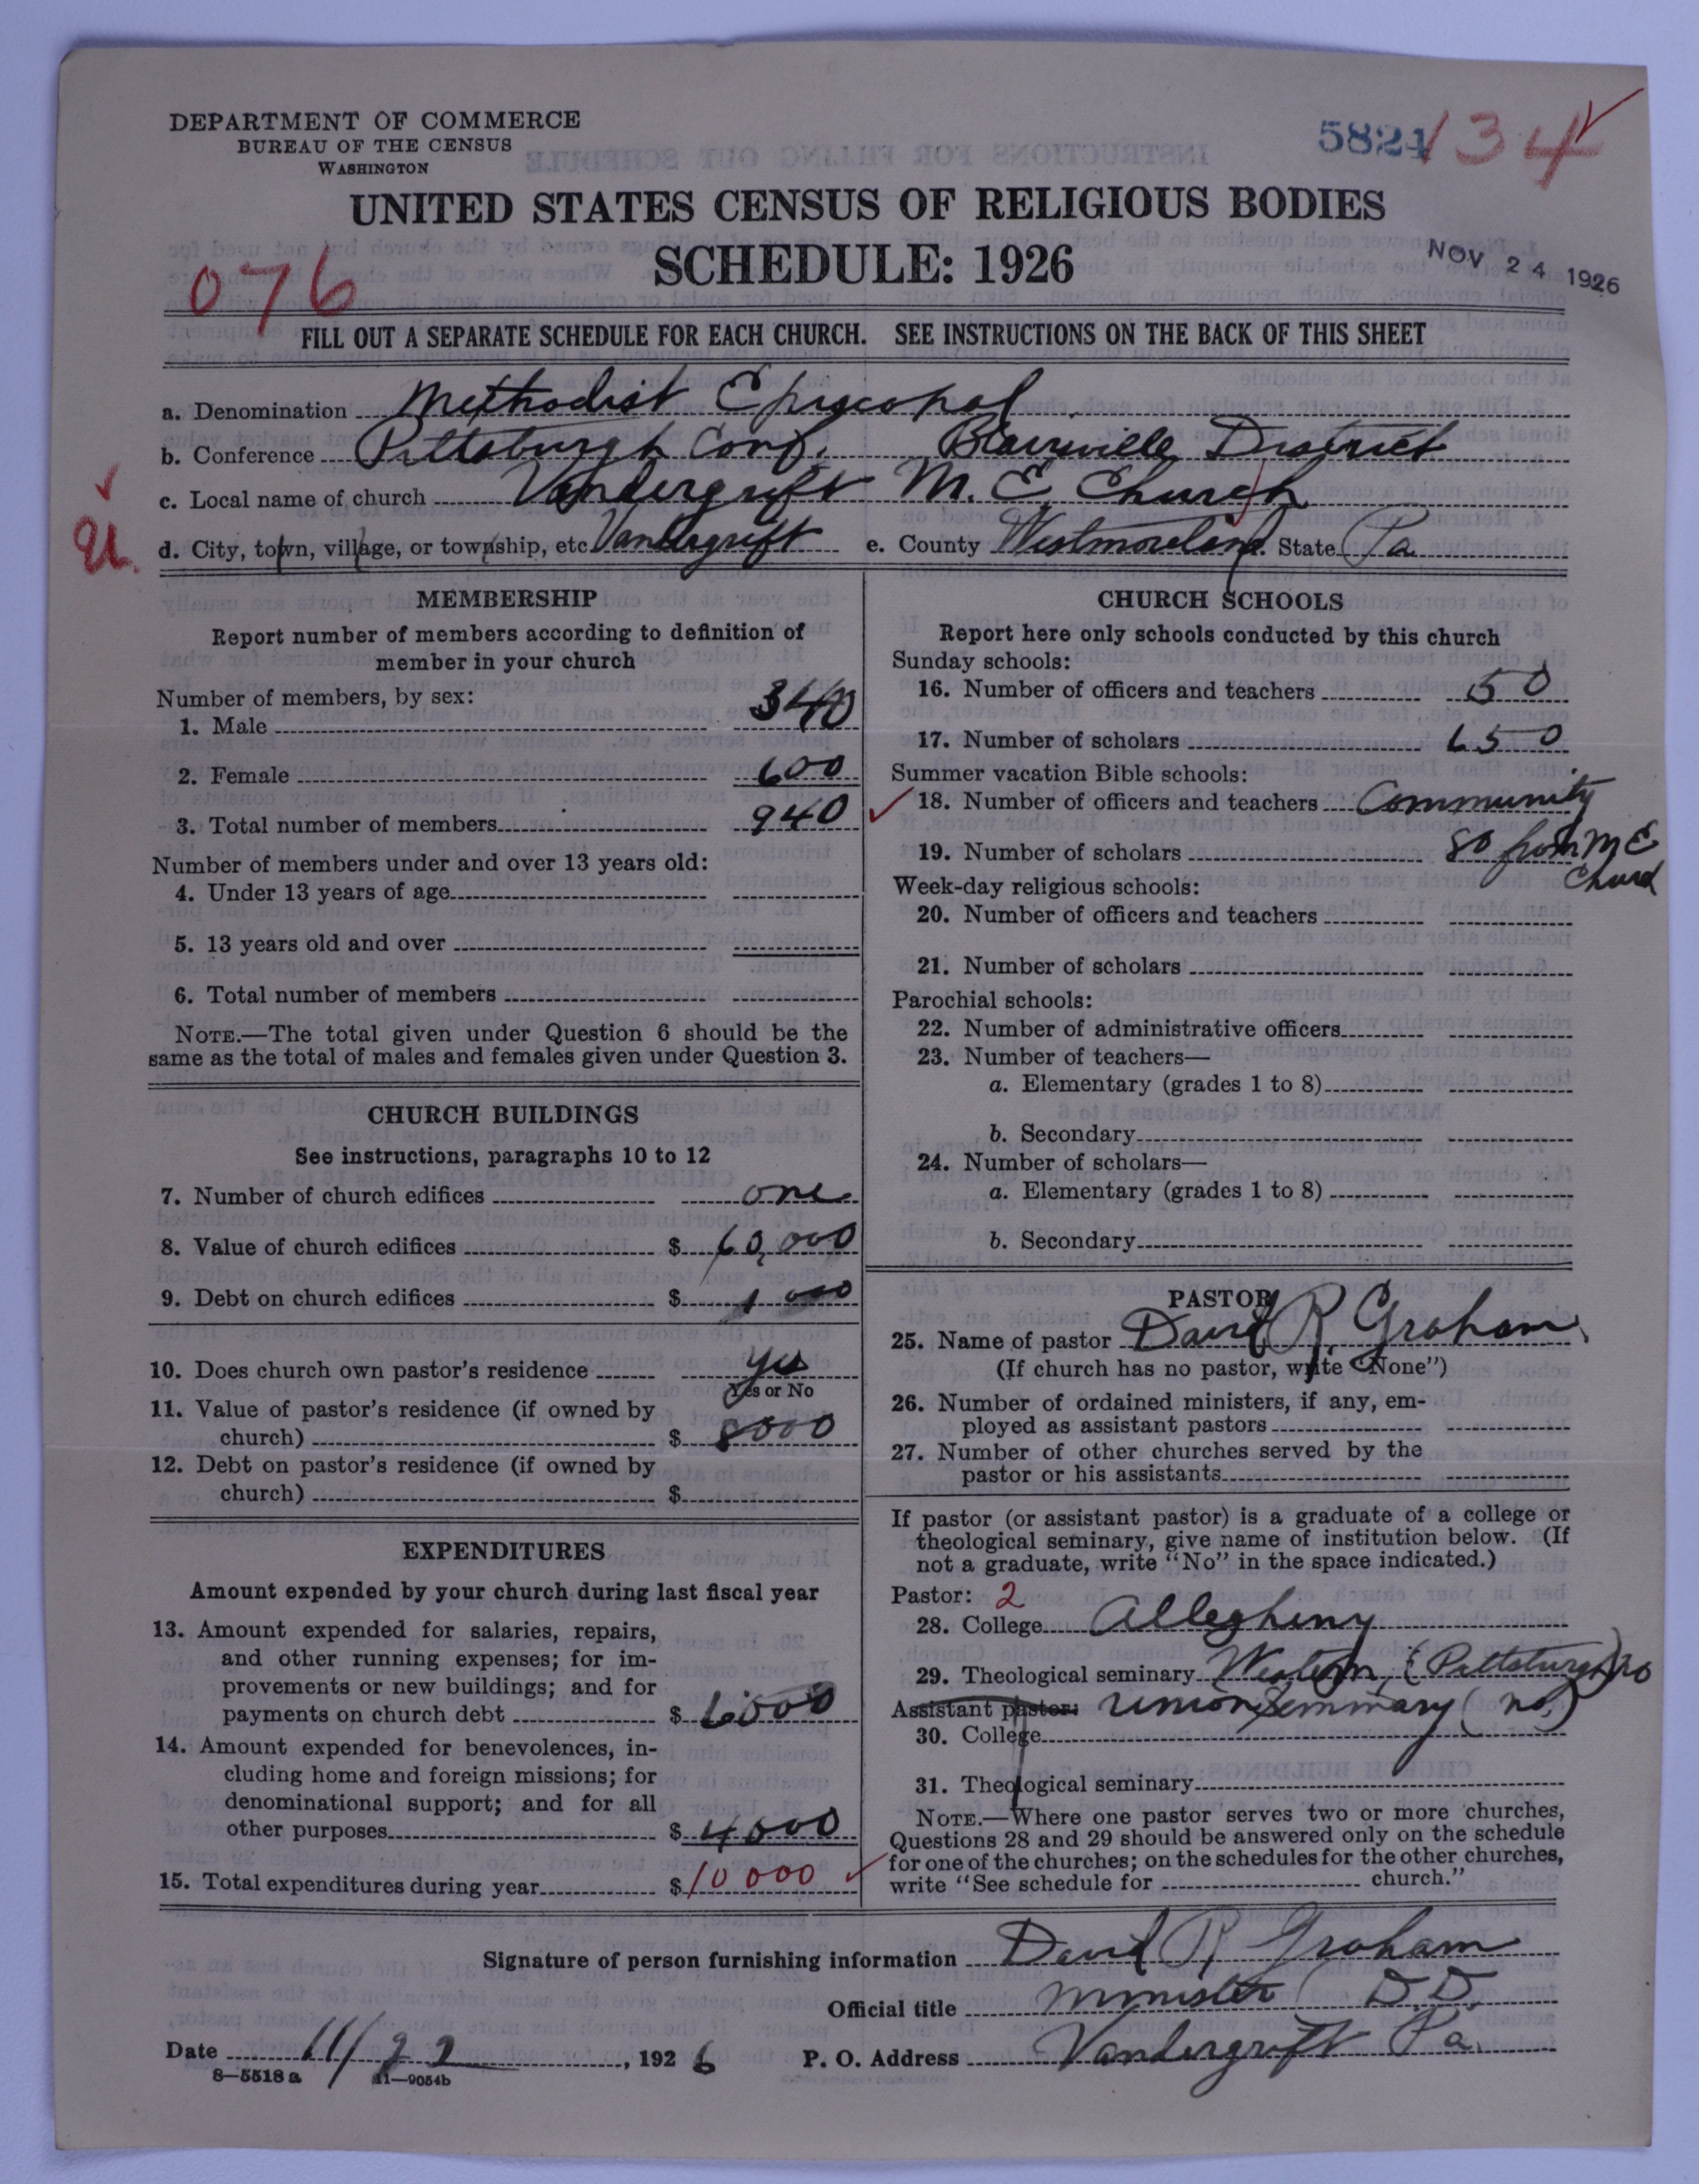 DEPARTMENT OF COMMERCE
BUREAU OF THE CENSUS
WASHINGTON
5824 134
UNITED STATES CENSUS OF RELIGIOUS BODIES
SCHEDULE: 1926
NOV 24 1926
076
FILL OUT A SEPARATE SCHEDULE FOR EACH CHURCH. SEE INSTRUCTIONS ON THE BACK OF THIS SHEET
a. Denomination Methodist Episcopal
b. Conference Pittsburgh Conf. Blairsville District
c. Local name of church Vandergrift M. E. Church
U.
d. City, town, village, or township, etc Vandergrift e. County Westmoreland. State Pa
MEMBERSHIP
Report number of members according to definition of
member in your church
Number of members, by sex:
1. Male 340
2. Female 600
3. Total number of members 940
Number of members under and over 13 years old:
4. Under 13 years of age
5. 13 years old and over
6. Total number of members
NOTE.—The total given under Question 6 should be the
same as the total of males and females given under Question 3.
CHURCH BUILDINGS
See instructions, paragraphs 10 to 12
7. Number of church edifices one
8. Value of church edifices $ 60,000
9. Debt on church edifices $ 1000
10. Does church own pastor's residence yes
Yes or No
11. Value of pastor's residence (if owned by
church) $ 8000
12. Debt on pastor's residence (if owned by
church) $
EXPENDITURES
Amount expended by your church during last fiscal year
13. Amount expended for salaries, repairs,
and other running expenses; for im-
provements or new buildings; and for
payments on church debt $ 6000
14. Amount expended for benevolences, in-
cluding home and foreign missions; for
denominational support; and for all
other purposes $ 4000
15. Total expenditures during year $ 10000
CHURCH SCHOOLS
Report here only schools conducted by this church
Sunday schools:
16. Number of officers and teachers 50
17. Number of scholars 650
Summer vacation Bible schools:
18. Number of officers and teachers Community
19. Number of scholars 80 from M E
Church
Week-day religious schools:
20. Number of officers and teachers
21. Number of scholars
Parochial schools:
22. Number of administrative officers
23. Number of teachers—
a. Elementary (grades 1 to 8)
b. Secondary
24. Number of scholars—
a. Elementary (grades 1 to 8)
b. Secondary
PASTOR
25. Name of pastor David R Graham
(If church has no pastor, write "None")
26. Number of ordained ministers, if any, em-
ployed as assistant pastors
27. Number of other churches served by the
pastor or his assistants
If pastor (or assistant pastor) is a graduate of a college or
theological seminary, give name of institution below. (If
not a graduate, write "No" in the space indicated.)
Pastor: 2
28. College Allegheny
29. Theological seminary Western, (Pittsburgh) no
Assistant pastor: Union Seminary (no)
30. College
31. Theological seminary
NOTE.—Where one pastor serves two or more churches,
Questions 28 and 29 should be answered only on the schedule
for one of the churches; on the schedules for the other churches,
write "See schedule for church."
Signature of person furnishing information David R. Graham
Official title Minister D.D.
Date 11/22, 1926 P. O. Address Vandergrift Pa.
8—5518a 11—9054b